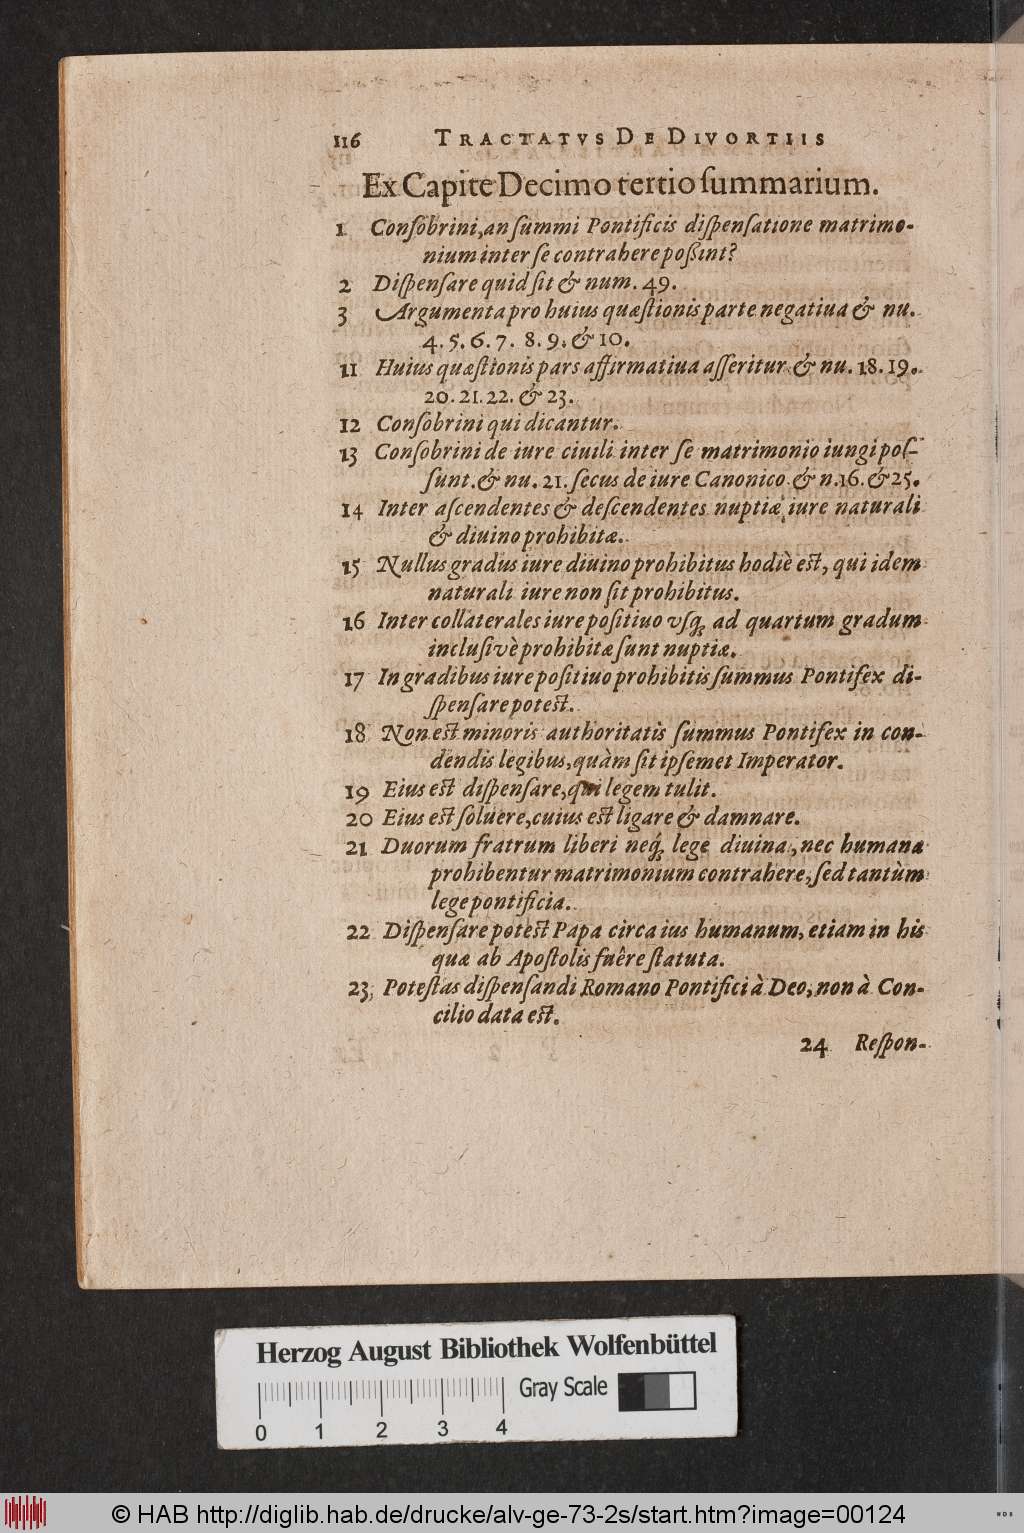 116 TRACTATVS DE DIVORTIIS
Ex Capite Decimo tertio ſummarium.
1 Conſobrini, an ſummi Pontificis diſpenſatione matrimo-
nium inter ſe contrahere poßint?
2 Diſpenſare quid ſit & num. 49.
3 Argumenta pro huius quæſtionis parte negatiua & nu.
4. 5. 6. 7. 8. 9. & 10.
11 Huius quæſtionis pars affirmatiua aſſeritur & nu. 18. 19.
20. 21. 22. & 23.
12 Conſobrini qui dicantur.
13 Conſobrini de iure ciuili inter ſe matrimonio iungi poſ-
ſunt. & nu. 21. ſecus de iure Canonico & n. 16. & 25.
14 Inter aſcendentes & deſcendentes nuptiæ iure naturali
& diuino prohibitæ.
15 Nullus gradus iure diuino prohibitus hodiè est, qui idem
naturali iure non ſit prohibitus.
16 Inter collaterales iure poſitiuo vſq; ad quartum gradum
incluſivè prohibitæ ſunt nuptiæ.
17 In gradibus iure poſitiuo prohibitis ſummus Pontifex di-
ſpenſare potest.
18 Non est minoris authoritatis ſummus Pontifex in con-
dendis legibus, quàm ſit ipſemet Imperator.
19 Eius est diſpenſare, qui legem tulit.
20 Eius est ſoluere, cuius est ligare & damnare.
21 Duorum fratrum liberi neq; lege diuina, nec humana
prohibentur matrimonium contrahere, ſed tantùm
lege pontificia.
22 Diſpenſare potest Papa circa ius humanum, etiam in his
quæ ab Apoſtolis fuêre ſtatuta.
23 Poteſtas diſpenſandi Romano Pontifici à Deo, non à Con-
cilio data est.
24 Reſpon-
Herzog August Bibliothek Wolfenbüttel
Gray Scale
0 1 2 3 4
© HAB http://diglib.hab.de/drucke/alv-ge-73-2s/start.htm?image=00124